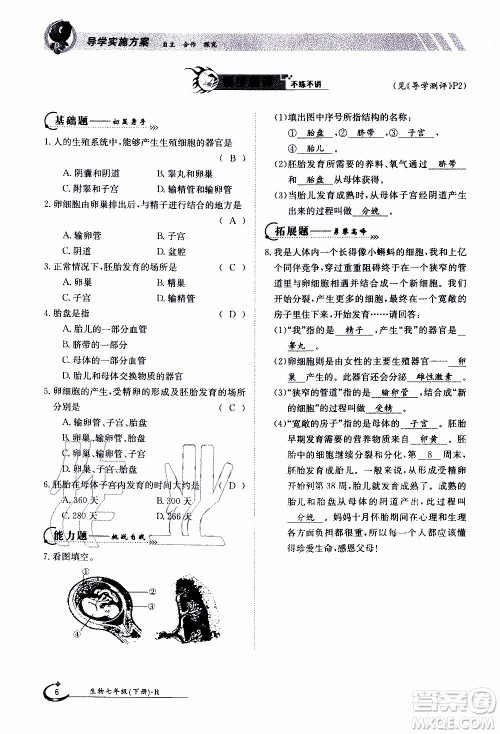 导学实施方案 自主 合作 探究
不练不讲
(见《导学测评》P2)
基础题——初显身手
1. 人的生殖系统中,能够产生生殖细胞的器官是
( B )
A. 阴囊和阴道 B. 睾丸和卵巢
C. 附睾和子宫 D. 输精管和输卵管
2. 卵细胞由卵巢排出后,与精子进行结合的地方是
( A )
A. 输卵管 B. 子宫
C. 阴道 D. 盆腔
3. 正常情况下,胚胎发育的场所是 ( C )
A. 卵巢 B. 输卵管
C. 子宫 D. 输精管
4. 胎盘是指 ( D )
A. 胎儿的一部分血管
B. 脐带的一部分血管
C. 母体子宫的一部分血管
D. 胎儿和母体交换物质的器官
5. 卵细胞的产生、受精卵的形成及胚胎发育的场所
分别是 ( C )
A. 输卵管、子宫、胎盘
B. 卵巢、子宫、胎盘
C. 卵巢、输卵管、子宫
D. 输卵管、卵巢、子宫
6. 胚胎在母体子宫内发育的时间大约是 ( D )
A. 360 天 B. 300 天
C. 280 天 D. 266 天
能力题——挑战自我
7. 看图填空。
①
②
③
④
(1)填出图中序号所指结构的名称:
① 胎盘 ② 脐带 ③ 子宫
④ 胎儿
(2)胚胎发育所需的养料、氧气通过 脐带
和 胎盘 从母体获得。
(3)当胎儿发育成熟时,从母体子宫经阴道产出
的过程叫做 分娩 。
拓展题——勇攀高峰
8. 我是人体内一个长得像小蝌蚪的细胞,我和上亿
个同胞兄弟一起,重重阻碍终于在一个狭窄的管
道里与我要找的细胞合体,然后来到一个宽敞的
房子里住了下来,开始发育……请回答:
(1)“我”指的是 精子 ,产生“我”的器官是
睾丸 。
(2)卵细胞则是由女性的主要生殖器官 卵
巢 产生的,此器官还能分泌 雌性激素 。
(3)“狭窄的管道”指的是 输卵管 ,“合体”
的过程叫做 受精 。
(4)“宽敞的房子”指的是母体的 子宫 。胚胎
早期发育的营养物质来自 卵黄 。胚
胎一般在母体内发育到第 8 周时,
胚胎发育成胎儿,呈现人形。一般来说,从受精卵
发育到第 38 周,胎儿就发育成熟了。成熟的
胎儿和胎盘一起从母体的阴道产出,这个过程叫
分娩 。妈妈十月怀胎期间在心理和生理
各方面负担都加重了,我们每个人都应该懂得
尊重生命、热爱生命,感恩父母!
6 生物七年级(下册)·R